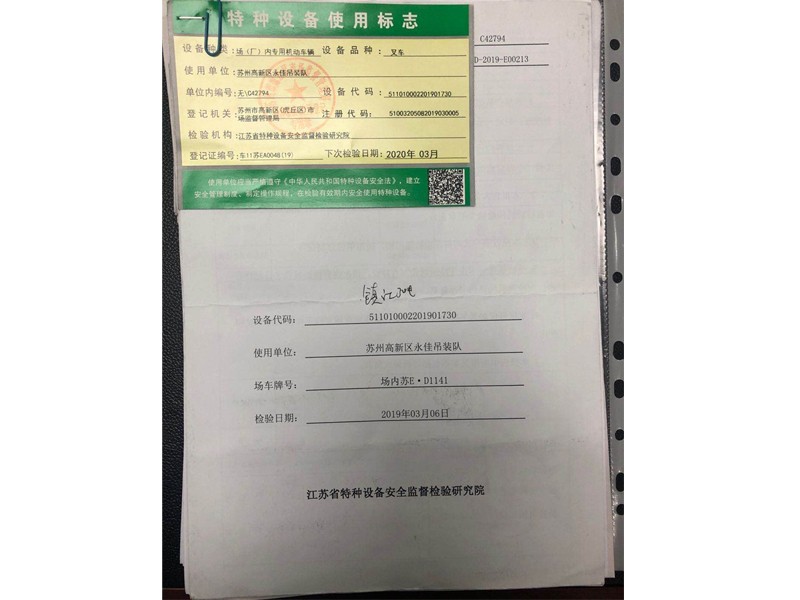 特种设备使用标志
设备种类：场（厂）内专用机动车辆 设备品种：叉车
使用单位：苏州高新区永佳吊装队
单位内编号：无\C42794 设备代码：511010002201901730
登记机关：苏州市高新区(虎丘区)市场监督管理局 注册代码：51003205082019030005
检验机构：江苏省特种设备安全监督检验研究院
登记证编号：车11苏EA0048(19) 下次检验日期：2020年 03月
使用单位应当严格遵守《中华人民共和国特种设备安全法》，建立
安全管理制度，制定操作规程，在检验有效期内安全使用特种设备。
C42794
D-2019-E00213
镇江
设备代码：511010002201901730
使用单位：苏州高新区永佳吊装队
场车牌号：场内苏E·D1141
检验日期：2019年03月06日
江苏省特种设备安全监督检验研究院